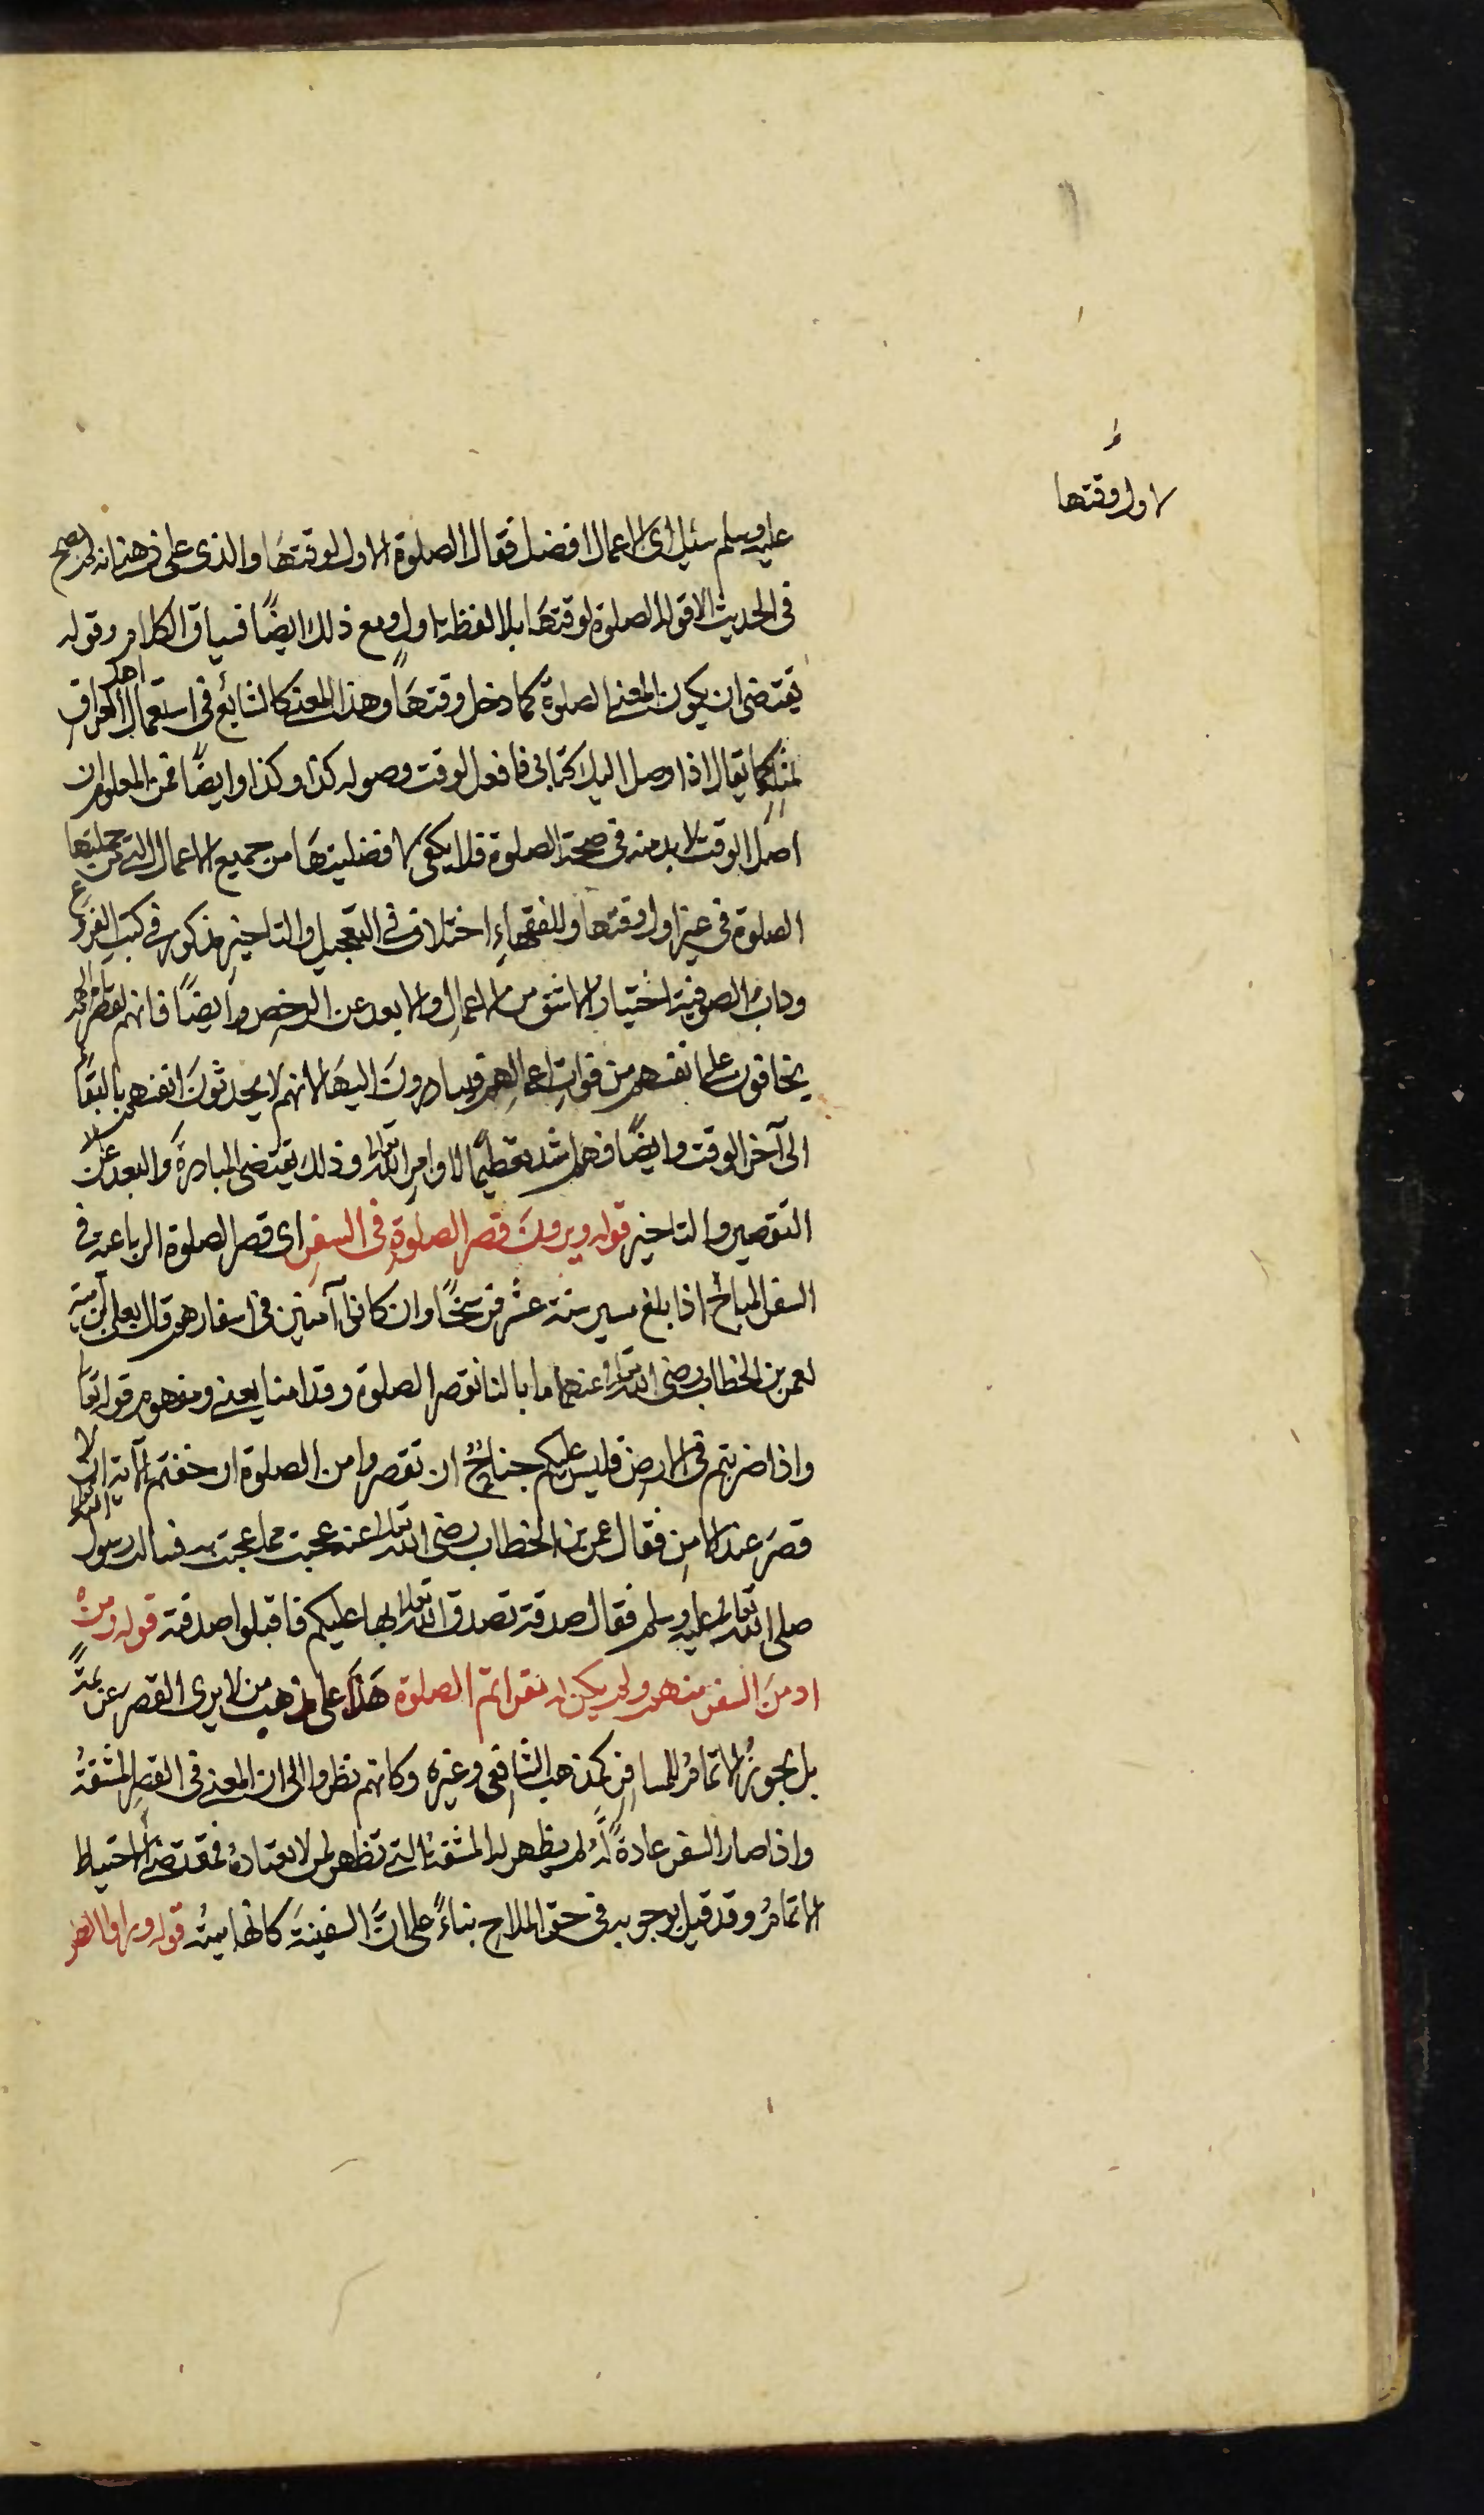 لاول وقتها
عليه وسلم سئل اى الاعمال افضل فقال الصلوة لاول لوقتها والذى على ذهنى انه لم يصح
فى الحديث الا قوله الصلوة لوقتها بلا لفظة اول ومع ذلك ايضًا فسياق الكلام وقوله
يقتضى ان يكون المعنى الصلوة كما دخل وقتها وهذا المعنى كالشائع فى استعمال اهل العراق
كما يقال اذا وصل اليك كتابى فافعل لوقت وصوله كذا وكذا وايضًا فمن المعلوم ان
اصل الوقت لا بد منه فى صحة الصلوة فلا يكفى لافضليتها من جميع الاعمال التى من جملتها
الصلوة فى غير اول وقتها وللفقهاء اختلاف فى التعجيل والتاخير مذكور فى كتب الفروع
وداب الصوفية اختيار الاشق من الاعمال والابعد عن الرخص وايضًا فانهم لقصر املهم
يخافون على انفسهم من فوات اعمالهم فيبادرون اليها لانهم لا يحدثون انفسهم بالبقاء
الى آخر الوقت وايضًا فهم اشد تعظيمًا لاوامر الله تعالى وذلك يقتضى المبادرة والبعد عن
التقصير والتاخير قوله ويرون قصر الصلوة فى السفر اى قصر الصلوة الرباعية فى
السفر المباح اذا بلغ مسير ستة عشر فرسخًا وان كانوا آمنين فى اسفارهم قال يعلى بن منية
لعمر بن الخطاب رضى الله تعالى عنهما ما بالنا نقصر الصلوة وقد امنا يعنى ومفهوم قوله تعالى
واذا ضربتم فى الارض فليس عليكم جناح ان تقصروا من الصلوة ان خفتم الآية ان لا
قصر عند الامن فقال عمر بن الخطاب رضى الله تعالى عنه عجبت مما عجبت منه فسالت رسول الله
صلى الله تعالى عليه وسلم فقال صدقة تصدق الله تعالى بها عليكم فاقبلوا صدقته قوله ومن
ادمن السفر منهم ولم يكن له مقر اتم الصلوة هذا على مذهب من لا يرى القصر عزيمةً
بل يجوز الاتمام للمسافر كمذهب الشافعى وغيره وكانهم نظروا الى ان المعنى فى القصر المشقة
واذا صار السفر عادةً له لم يظهر له المشقة التى تظهر لمن لا يعتاده فمقتضى الاحتياط
الاتمام وقد قيل بوجوبه فى حق الملاح بناءً على ان السفينة كانها بيته قوله وراوا الفطر